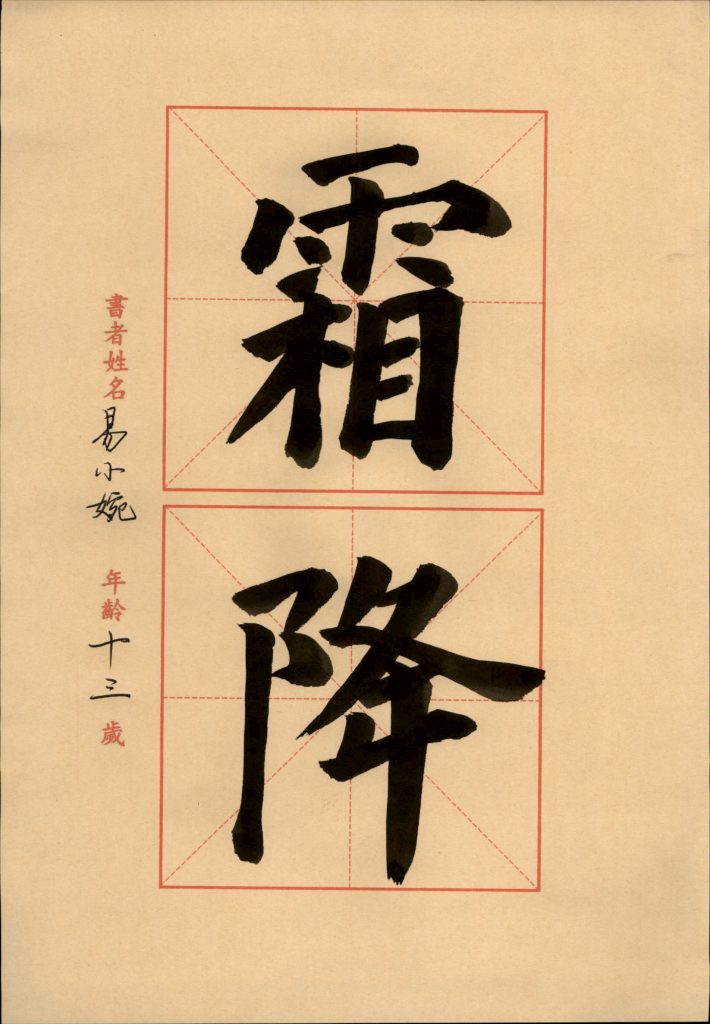 霜降
書者姓名 易小婉 年齡 十三 歲